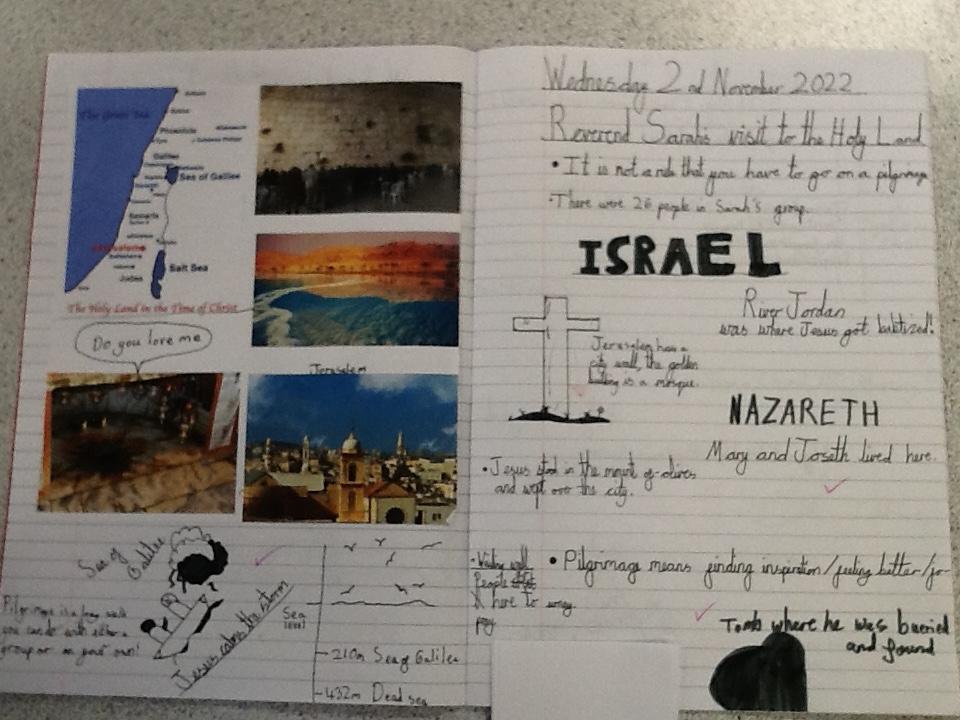 The Great Sea
Phoenicia
Galilee
Sea of Galilee
Samaria
Jerusalem
Salt Sea
Judea
The Holy Land in the Time of Christ
Do you love me
Jerusalem
Sea of
Galilee
Jesus calms the storm
Pilgrimage is a long walk
you can do with either a
group or on your own!
Sea
level
-210m Sea of Galilee
-432m Dead sea
Wednesday 2nd November 2022
Reverend Sarah's visit to the Holy Land
• It is not a rule that you have to go on a pilgrimage
• There were 26 people in Sarah's group.
ISRAEL
River Jordan
was where Jesus got babtized!
Jerusalem has a
city wall, the golden
building is a mosque.
NAZARETH
Mary and Joseth lived here.
• Jesus stood in the mount of olives
and wept over the city.
• Wailing wall
People
here to
pray
• Pilgrimage means finding inspiration/feeling better/
Tomb where he was buried
and found